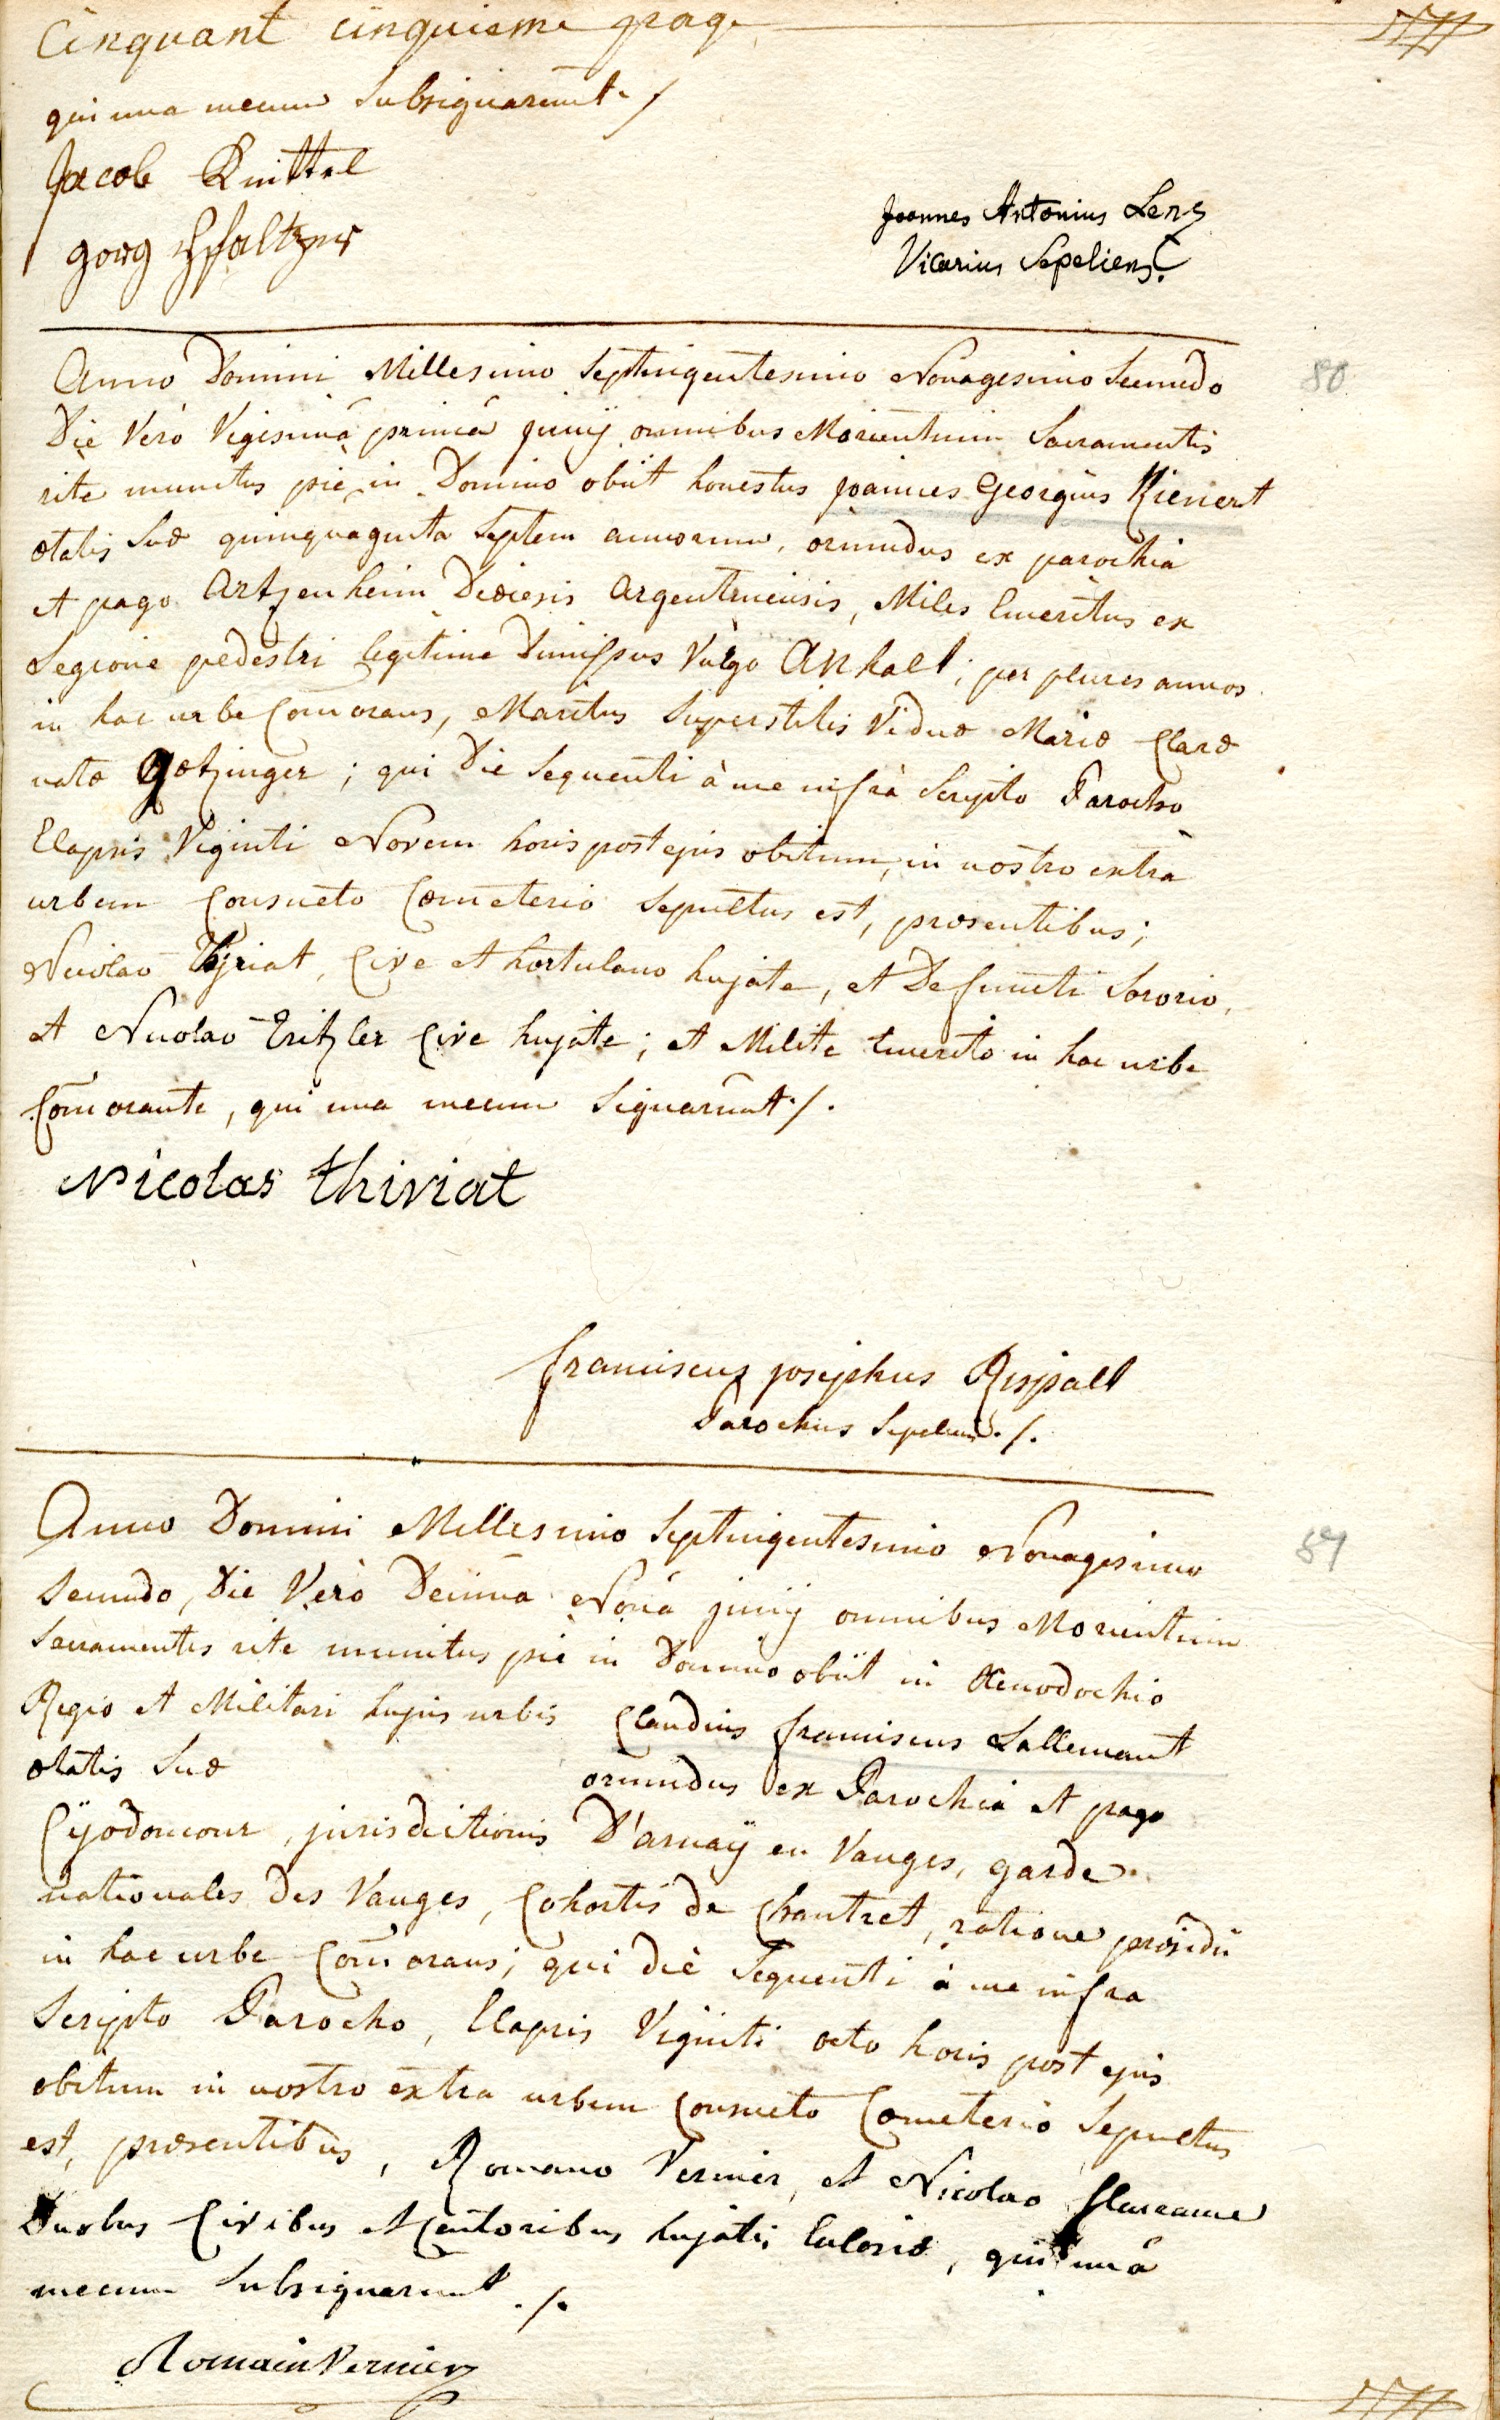 Cinquant cinquieme page
qui una mecum subsignarunt ./
Jacob Knittel
Joannes Antonius Lens
georg Pfaltzer
Vicarius Sepeliens.
Anno Domini Millesimo Septingentesimo Nonagesimo Secundo
80
Die Verò Vigesimâ primâ junij omnibus Morientium Sacramentis
rite munitus piè in Domino obiit honestus joannes Georgius Kienert
ætatis suæ quinquaginta septem annorum, oriundus ex parochia
et pago Artzenheim Diœcesis argentinensis, Miles Emeritus ex
Legione pedestri legitime Dimissus Vulgo Anhalt; per plures annos
in hac urbe Com̄orans, Maritus superstitis Viduæ Mariæ Claræ
natæ Götzinger; qui Die sequenti à me infrà scripto Parocho
Elapsis Viginti Novem horis post ejus obitum, in nostro extrà
urbem Consueto Cœmeterio sepultus est, præsentibus;
Nicolao Thiriat, Cive et hortulano hujate, et Defuncti sororio,
et Nicolao Tritzler Cive hujate; et Milite Emerito in hac urbe
Com̄orante, qui una mecum signarunt ./.
Nicolas thiriat
franciscus josephus Rispalt
Parochus Sepeliens ./.
Anno Domini Millesimo Septingentesimo Nonagesimo
87
Secundo, Die Verò Decima Nonâ junij omnibus Morientium
Sacramentis rite munitus piè in Domino obiit in Xenodochio
Regio et Militari hujus urbis Claudius franciscus Lallemant
ætatis suæ oriundus ex Parochia et pago
Cÿodoncour, jurisdictionis D'arnaÿ en Vauges, garde
nationales des Vauges, Cohortis de Chantret, ratione præsidii
in hac urbe Com̄orans; qui diè sequenti à me infra
Scripto Parocho, Elapsis Viginti octo horis post ejus
obitum in nostro extra urbem Consueto Cœmeterio Sepultus
est, præsentibus, Romano Vernier, et Nicolao
Duobus Civibus et Cantoribus hujatis Ecclesiæ, qui unâ
mecum Subsignarunt ./.
Romain Vernier